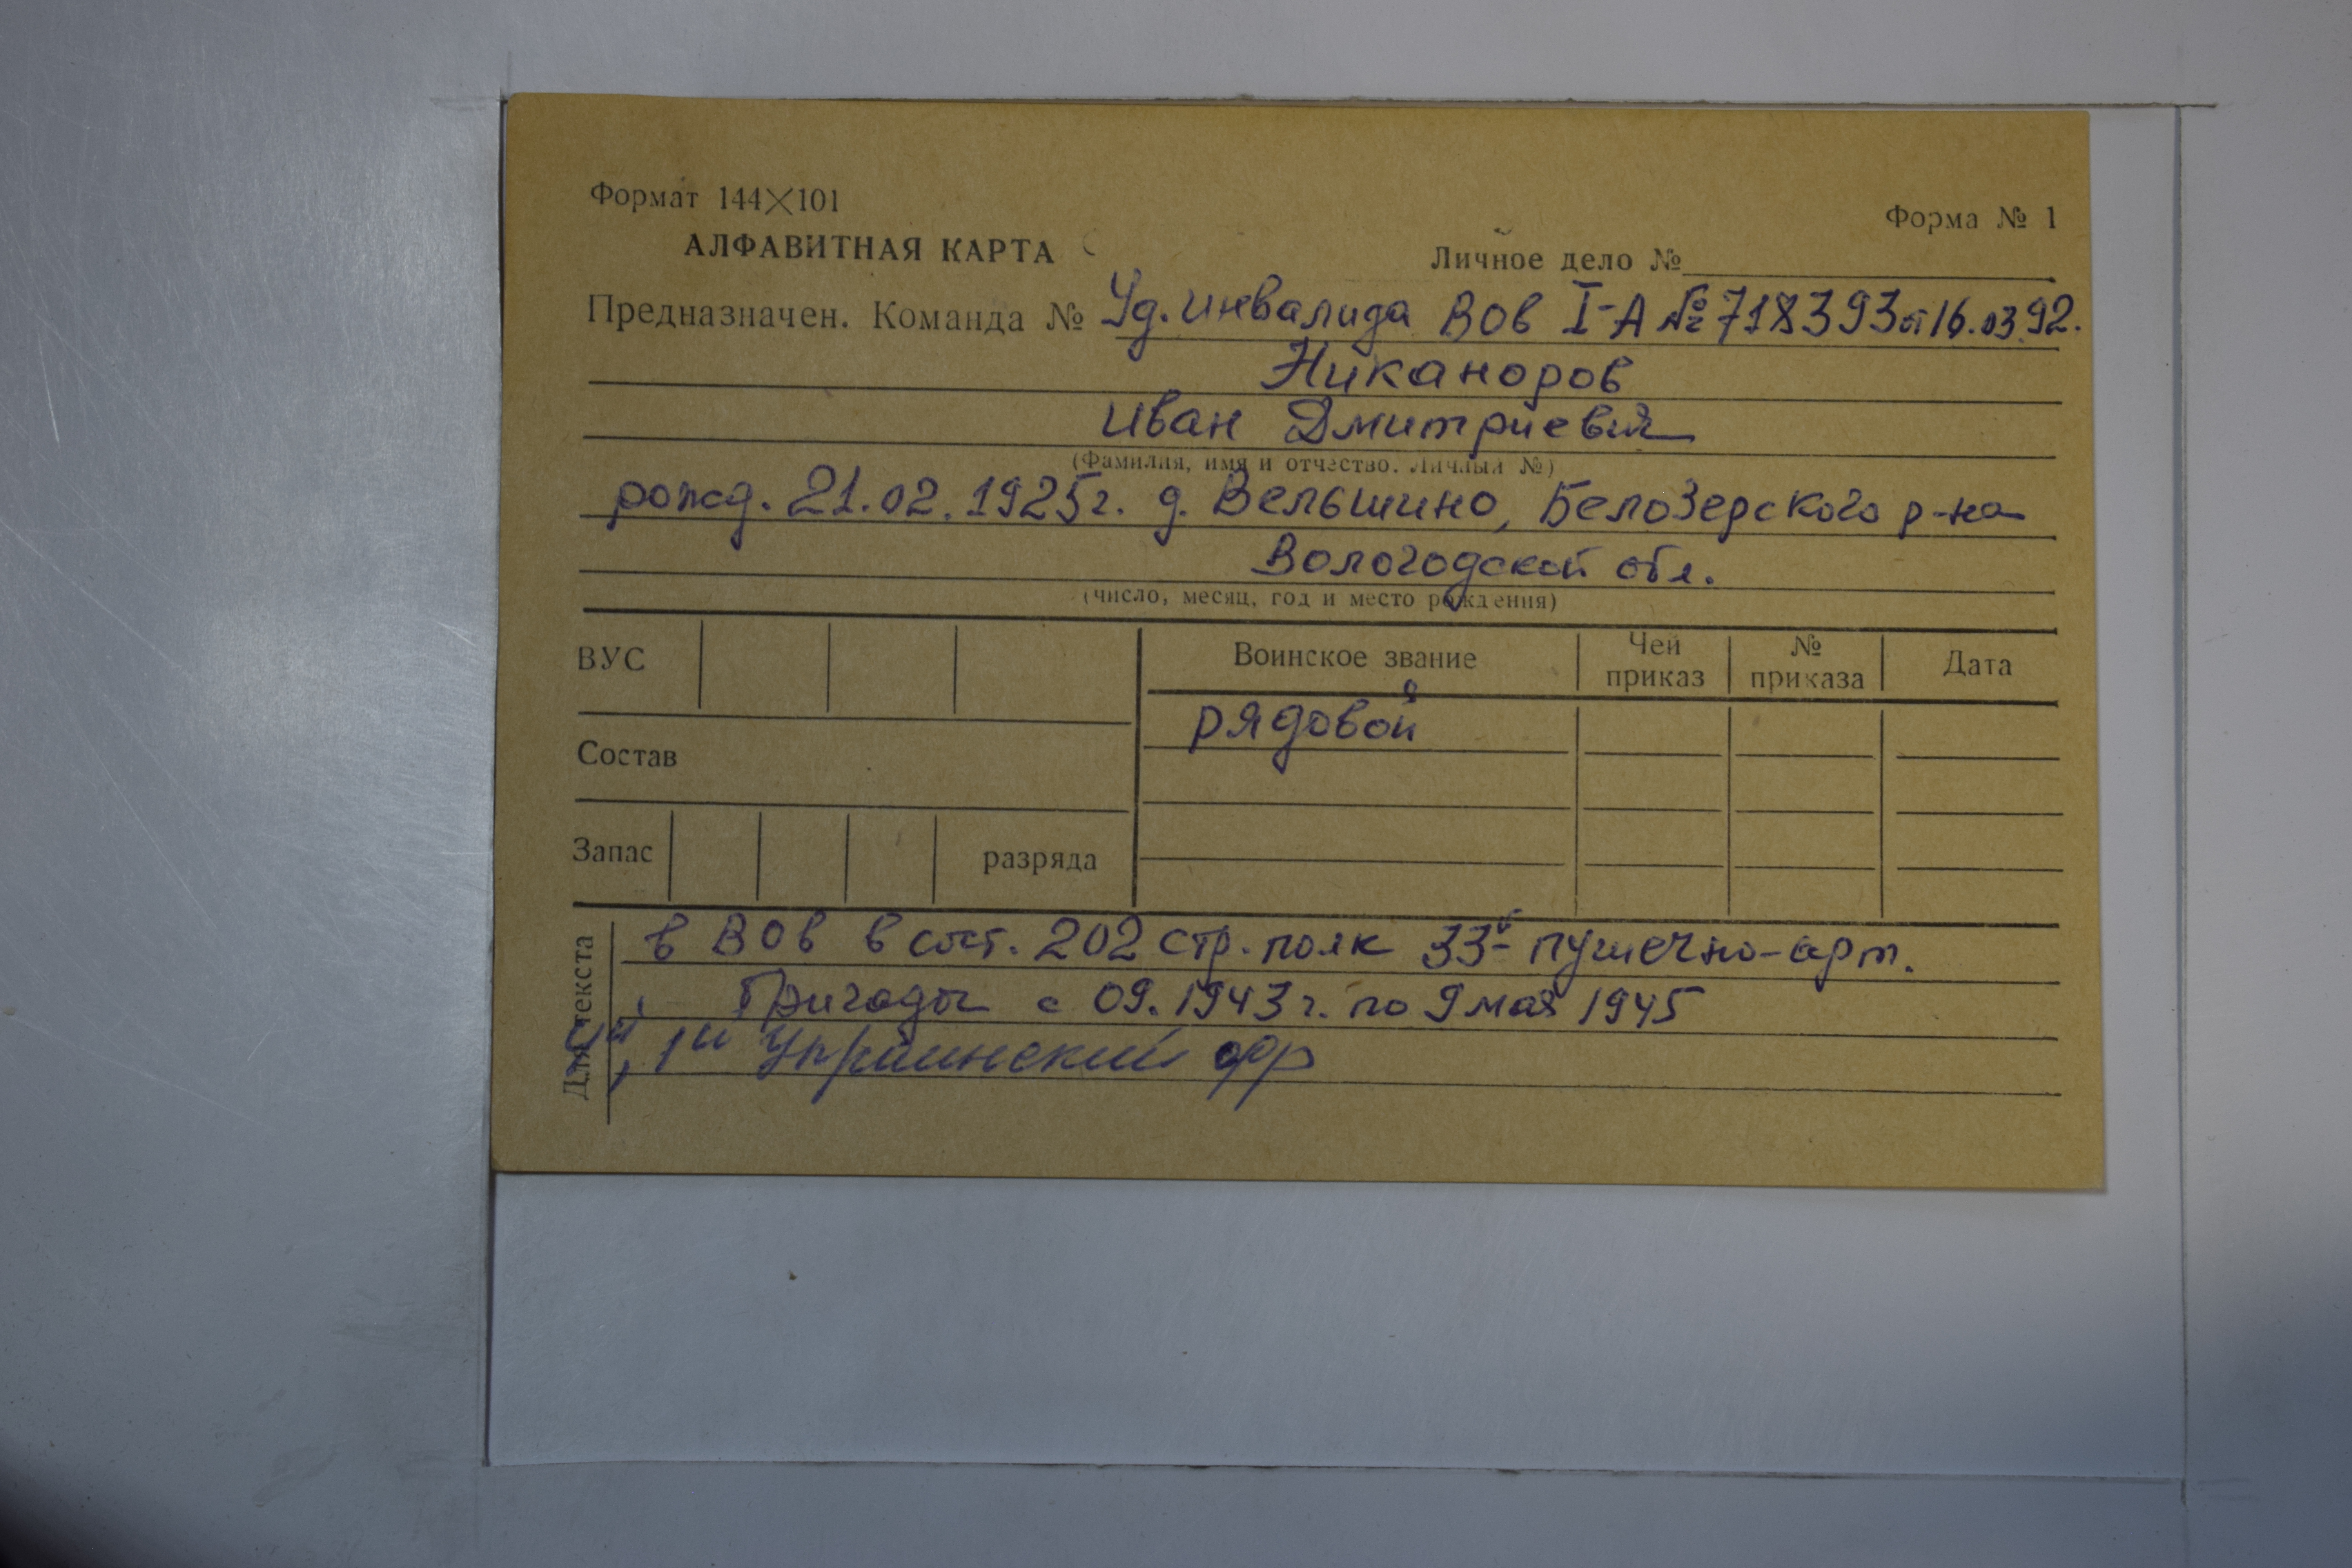 Формат 144×101
Форма № 1
АЛФАВИТНАЯ КАРТА
Личное дело №
Предназначен. Команда № Уд. инвалида ВОв I-А № 718393 от 16.03.92.
Никаноров
Иван Дмитриевич
(Фамилия, имя и отчество. Личный №)
рожд. 21.02.1925г. д. Вельшино, Белозерского р-на
Вологодской обл.
(число, месяц, год и место рождения)
ВУС
Воинское звание
Чей приказ
№ приказа
Дата
рядовой
Состав
Запас
разряда
Для текста
в ВОв в сост. 202 стр. полк 33й пушечно-арт.
Бригады с 09.1943г. по 9 мая 1945
4й, 1й Украинский фр